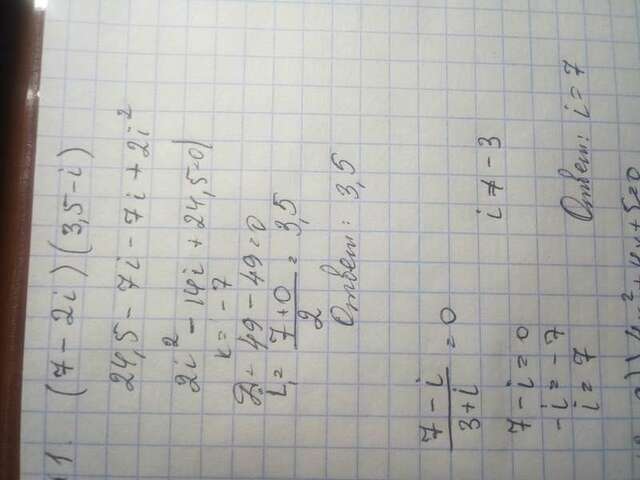 1. (7-2i)(3,5-i)
24,5-7i-7i+2i²
2i²-14i+24,5=0|
k=-7
D=49-49=0
i=(7+0)/2=3,5
Ответ: 3,5
(7-i)/(3+i)=0
i≠-3
7-i=0
-i=-7
i=7
Ответ: i=7